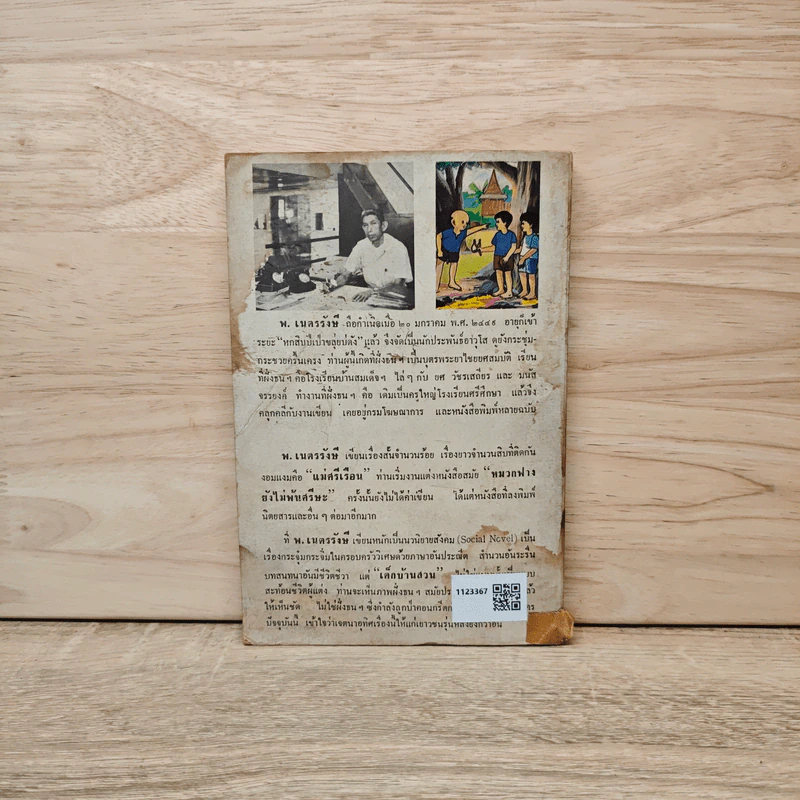 พ. เนตรรังษี ถือกำเนิดเมื่อ ๒๐ มกราคม พ.ศ. ๒๔๕๑ อายุก็เข้า
ระยะ "หกสิบปีเป่าขลุ่ยบ่ดัง" แล้ว จึงจัดเป็นนักประพันธ์อาวุโส ดูยังกระชุ่ม-
กระชวยครื้นเครง ท่านผู้นี้เกิดที่ฝั่งธนฯ เป็นบุตรพระยาไชยยศสมบัติ เรียน
ที่ฝั่งธนฯ คือโรงเรียนบ้านสมเด็จฯ ไล่ๆ กับ ยศ วัชรเสถียร และ มนัส
จรรยงค์ ทำงานที่ฝั่งธนฯ คือ เดิมเป็นครูใหญ่โรงเรียนศรีศึกษา แล้วจึง
คลุกคลีกับงานเขียน เคยอยู่กรมโฆษณาการ และหนังสือพิมพ์หลายฉบับ
พ. เนตรรังษี เขียนเรื่องสั้นจำนวนร้อย เรื่องยาวจำนวนสิบที่ติดกัน
งอมแงมคือ "แม่ศรีเรือน" ท่านเริ่มงานแต่งหนังสือสมัย "หมวกฟาง
ยังไม่พ้นศรีษะ" ครั้งนั้นยังไม่ได้ค่าเขียน ได้แต่หนังสือที่ลงพิมพ์
นิตยสารและอื่น ๆ ต่อมาอีกมาก
ที่ พ. เนตรรังษี เขียนหนักเป็นนวนิยายสังคม (Social Novel) เป็น
เรื่องกระจุ๋มกระจิ๋มในครอบครัววิเศษด้วยภาษาอันประณีต สำนวนอันระรื่น
บทสนทนาอันมีชีวิตชีวา แต่ "เด็กบ้านสวน"
สะท้อนชีวิตผู้แต่ง ท่านจะเห็นภาพฝั่งธนฯ
ให้เห็นชัด ไม่ใช่ฝั่งธนฯ ซึ่งกำลังถูกป่าคอนกรีต
ปัจจุบันนี้ เข้าใจว่าเจตนาอุทิศเรื่องนี้ให้แก่เยาวชนรุ่นหลัง
1123367